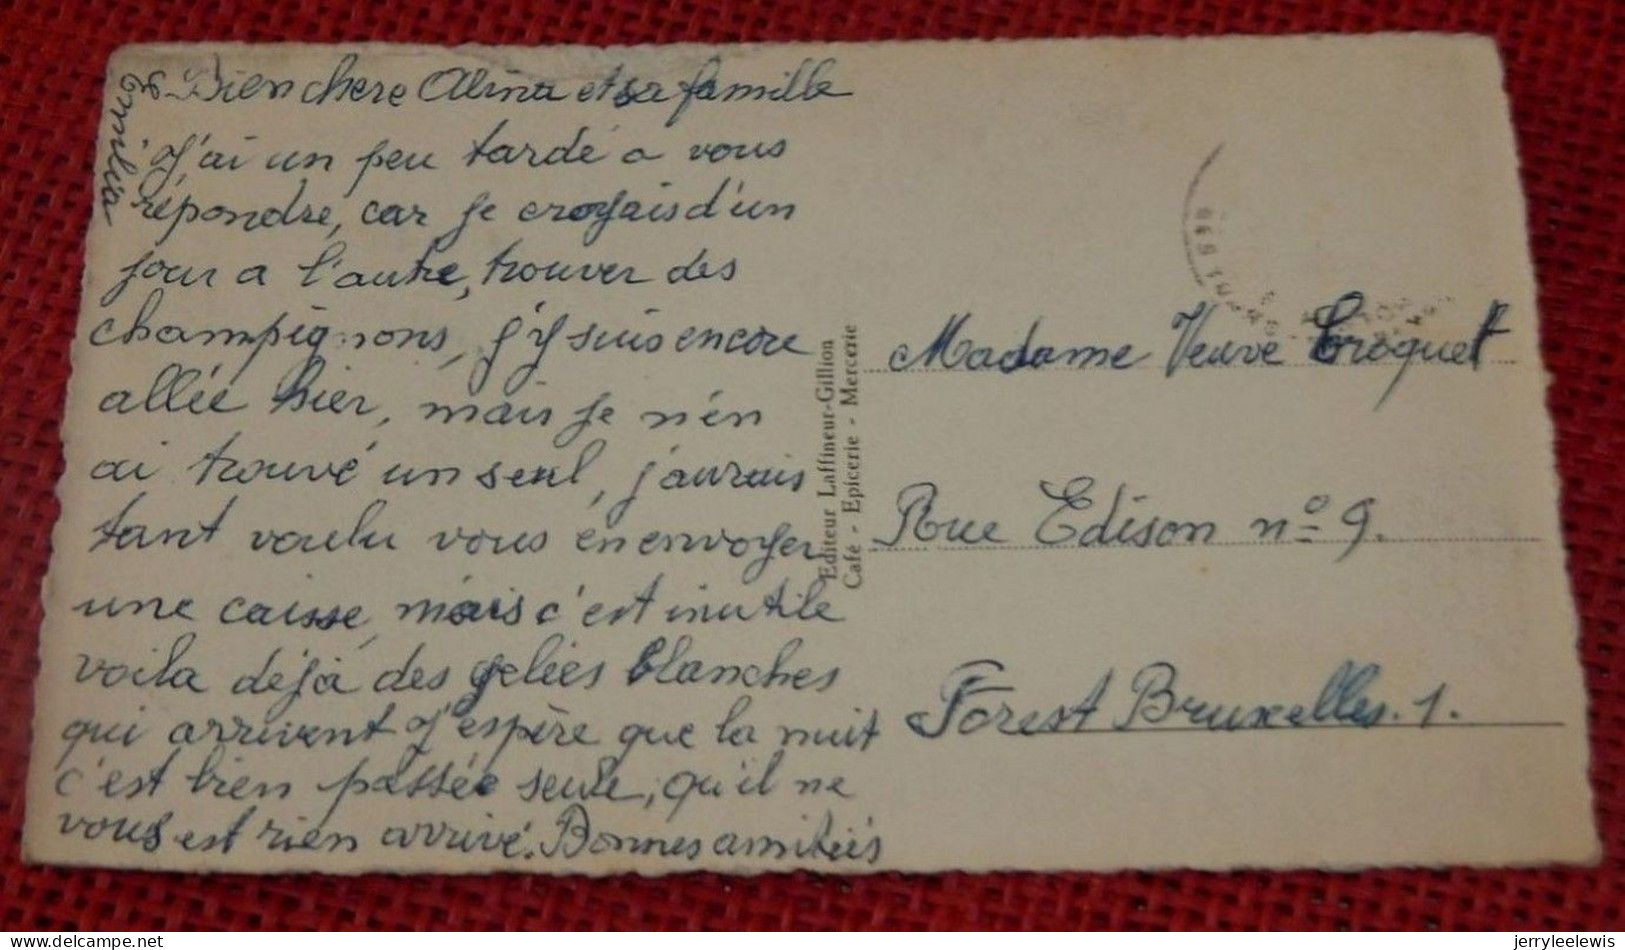 Bien chere Alina et sa famille
J'ai un peu tardé a vous
répondre, car je croyais d'un
jour a l'autre, trouver des
champignons, j'y suis encore
allée hier, mais je n'en
ai trouvé un seul, j'aurais
tant voulu vous en envoyer
une caisse, mais c'est inutile
voila déjà des gelées blanches
qui arrivent J'espère que la nuit
c'est bien passée seule, qu'il ne
vous est rien arrivé. Bonnes amitiés
Emilia
Editeur Laffineur-Gillion
Café - Epicerie - Mercerie
Madame Veuve Croquet
Rue Edison nº 9.
Forest Bruxelles. 1.
delcampe.net
jerryleelewis